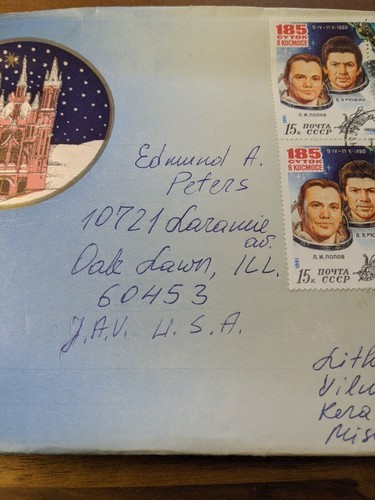 185
СУТОК
В КОСМОСЕ
9·IV-11·X·1980
Л.И.ПОПОВ
В.В.РЮМИН
1981
15к ПОЧТА
СССР
185
СУТОК
В КОСМОСЕ
9·IV-11·X·1980
Л.И.ПОПОВ
1981
15к ПОЧТА
СССР
Edmund A.
Peters
10721 Laramie
av.
Oak Lawn, ILL.
60453
J.A.V. U.S.A.